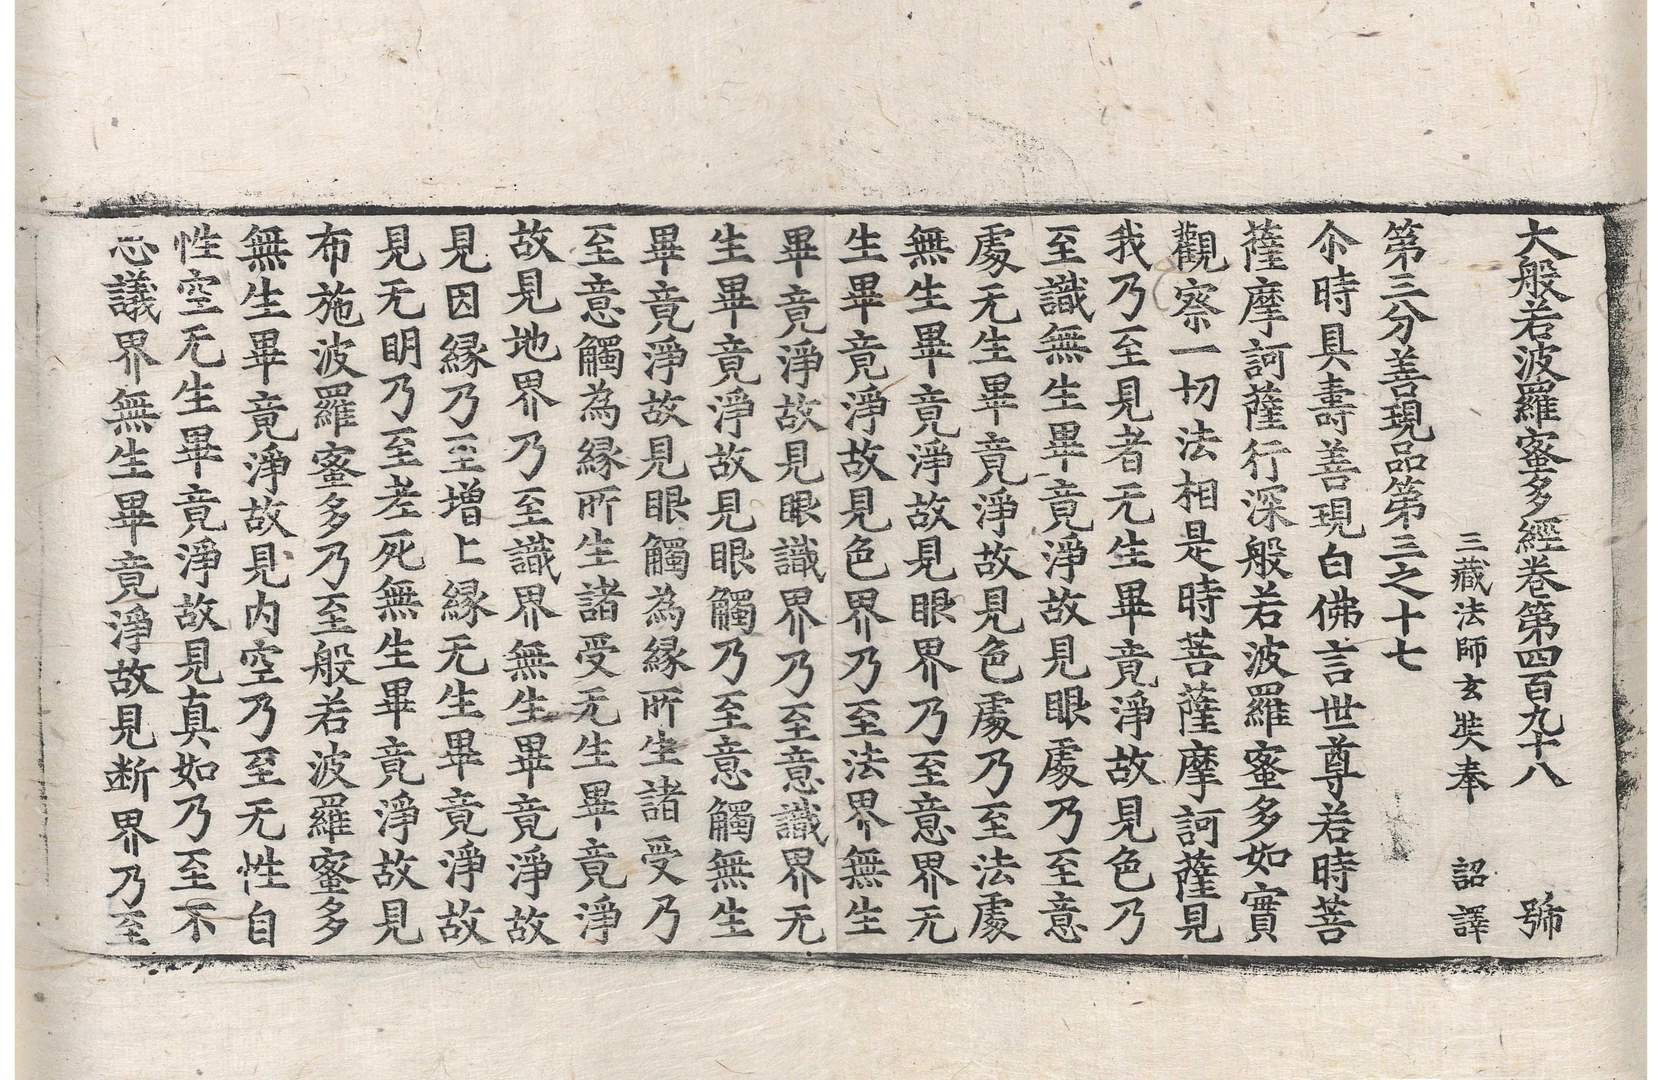 大般若波羅蜜多經卷第四百九十八　號
三藏法師玄奘奉　詔譯
第三分善現品第三之十七
尒時具壽善現白佛言世尊若時菩
薩摩訶薩行深般若波羅蜜多如實
觀察一切法相是時菩薩摩訶薩見
我乃至見者无生畢竟淨故見色乃
至識無生畢竟淨故見眼處乃至意
處无生畢竟淨故見色處乃至法處
無生畢竟淨故見眼界乃至意界无
生畢竟淨故見色界乃至法界無生
畢竟淨故見眼識界乃至意識界无
生畢竟淨故見眼觸乃至意觸無生
畢竟淨故見眼觸為緣所生諸受乃
至意觸為緣所生諸受无生畢竟淨
故見地界乃至識界無生畢竟淨故
見因緣乃至增上緣无生畢竟淨故
見无明乃至老死無生畢竟淨故見
布施波羅蜜多乃至般若波羅蜜多
無生畢竟淨故見内空乃至无性自
性空无生畢竟淨故見真如乃至不
思議界無生畢竟淨故見断界乃至